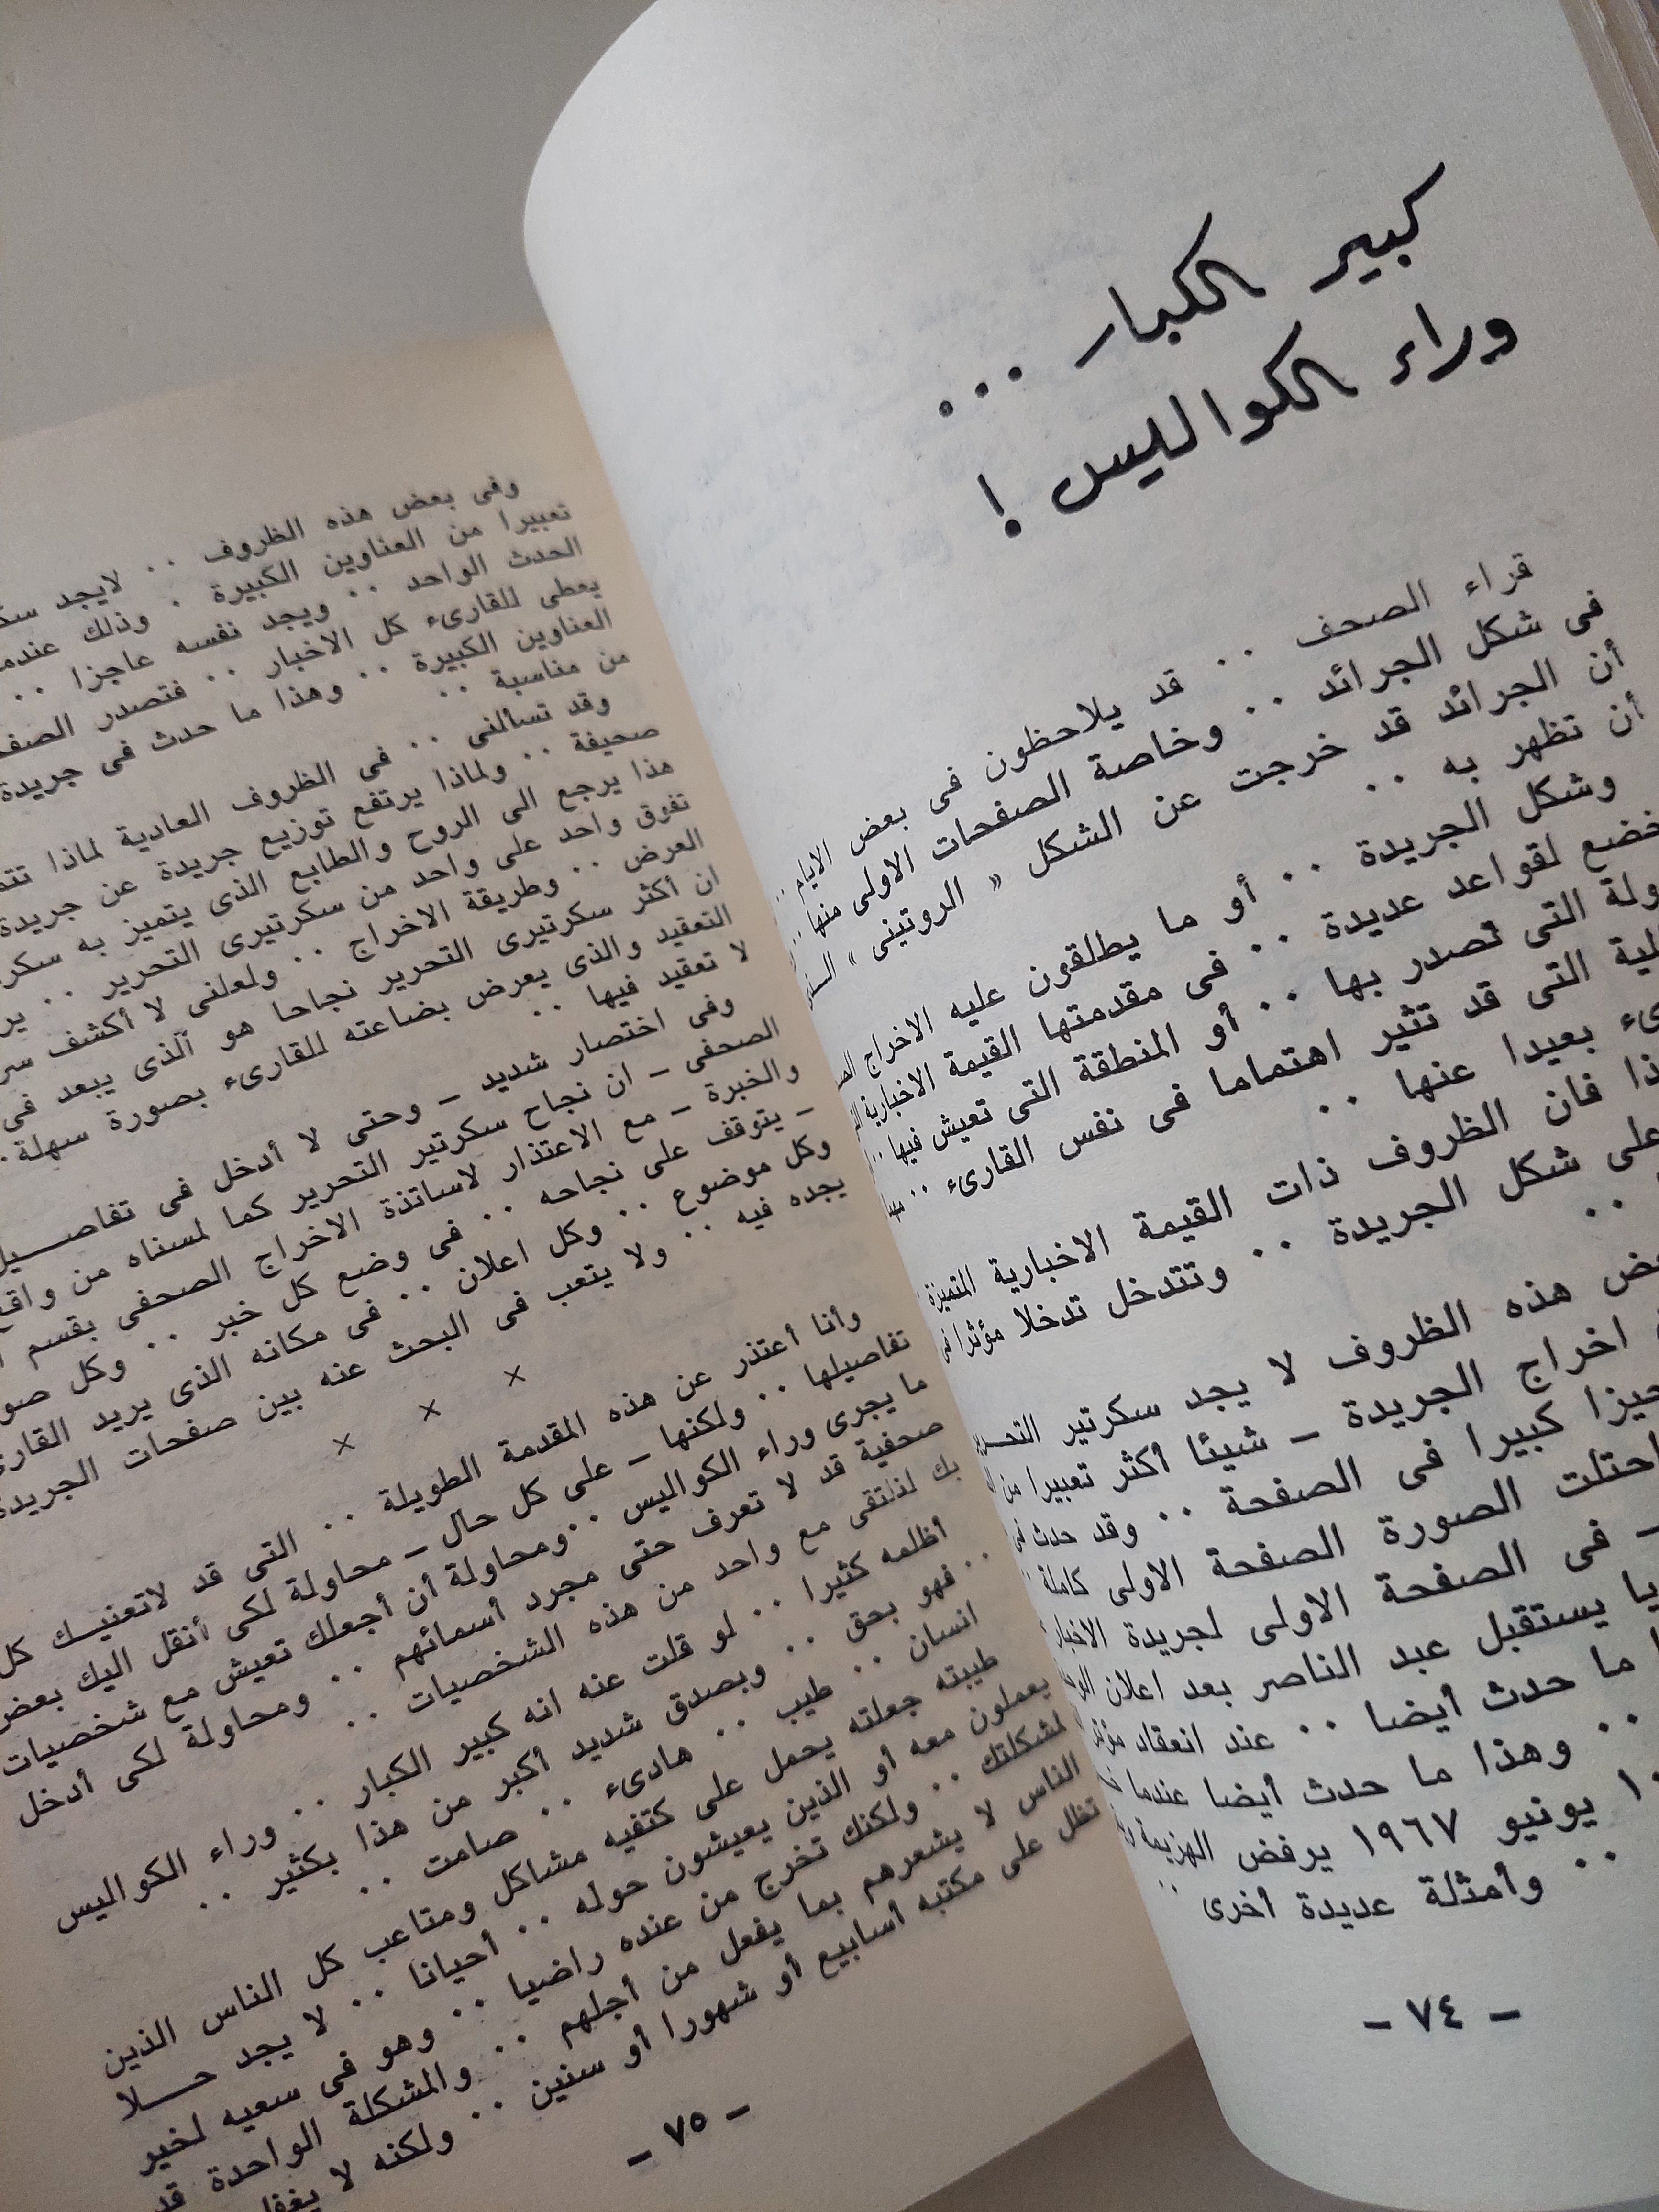 كبير الكبار ...
وراء الكواليس !
قراء الصحف .. قد يلاحظون فى بعض الايام ..
فى شكل الجرائد .. وخاصة الصفحات الاولى منها ..
أن الجرائد قد خرجت عن الشكل « الروتينى »
أن تظهر به ..
وشكل الجريدة .. أو ما يطلقون عليه الاخراج
لقواعد عديدة .. فى مقدمتها القيمة الاخبارية
التى تصدر بها .. أو المنطقة التى تعيش فيها ..
التى قد تثير اهتماما فى نفس القارىء ..
بعيدا عنها ..
فان الظروف ذات القيمة الاخبارية المتميزة
على شكل الجريدة .. وتتدخل تدخلا مؤثرا فى
..
هذه الظروف لا يجد سكرتير التحرير
اخراج الجريدة – شيئا أكثر تعبيرا من
كبيرا فى الصفحة .. وقد حدث فى
احتلت الصورة الصفحة الاولى كاملة ..
– فى الصفحة الاولى لجريدة الاخبار
يستقبل عبد الناصر بعد اعلان
ما حدث أيضا .. عند انعقاد
.. وهذا ما حدث أيضا عندما
يونيو ١٩٦٧ يرفض الهزيمة
.. وأمثلة عديدة أخرى ..
– ٧٤ –
وفى بعض هذه الظروف .. لايجد
تعبيرا من العناوين الكبيرة . وذلك عندما
الحدث الواحد .. ويجد نفسه عاجزا ..
يعطى للقارىء كل الاخبار .. فتصدر
العناوين الكبيرة .. وهذا ما حدث فى جريدة
من مناسبة ..
وقد تسألنى .. فى الظروف العادية لماذا
صحيفة .. ولماذا يرتفع توزيع جريدة عن جريدة
هذا يرجع الى الروح والطابع الذى يتميز به
تفوق واحد على واحد من سكرتيرى التحرير ..
العرض .. وطريقة الاخراج .. ولعلنى لا أكشف
ان أكثر سكرتيرى التحرير نجاحا هو الذى يبعد فى
التعقيد والذى يعرض بضاعته للقارىء بصورة سهلة
لا تعقيد فيها ..
وفى اختصار شديد – وحتى لا أدخل فى تفاصيل
الصحفى – ان نجاح سكرتير التحرير كما لمسناه من
والخبرة – مع الاعتذار لاساتذة الاخراج الصحفى بقسم
– يتوقف على نجاحه .. فى وضع كل خبر .. وكل
وكل موضوع .. وكل اعلان .. فى مكانه الذى يريد
يجده فيه .. ولا يتعب فى البحث عنه بين صفحات الجريدة
× × ×
وأنا أعتذر عن هذه المقدمة الطويلة .. التى قد لاتعنيك كل
تفاصيلها .. ولكنها – على كل حال – محاولة لكى أنقل اليك بعض
ما يجرى وراء الكواليس .. ومحاولة أن أجعلك تعيش مع شخصيات
صحفية قد لا تعرف حتى مجرد أسمائهم .. ومحاولة لكى أدخل
بك لنلتقى مع واحد من هذه الشخصيات ..
أظلمه كثيرا .. لو قلت عنه انه كبير الكبار .. وراء الكواليس
.. فهو بحق .. وبصدق شديد أكبر من هذا بكثير ..
انسان .. طيب .. هادىء .. صامت ..
طيبته جعلته يحمل على كتفيه مشاكل ومتاعب كل الناس الذين
يعملون معه أو الذين يعيشون حوله .. أحيانا .. لا يجد حلا
لمشكلتك .. ولكنك تخرج من عنده راضيا .. وهو فى سعيه لخير
الناس لا يشعرهم بما يفعل من أجلهم .. والمشكلة الواحدة قد
تظل على مكتبه أسابيع أو شهورا أو سنين .. ولكنه لا
– ٧٥ –